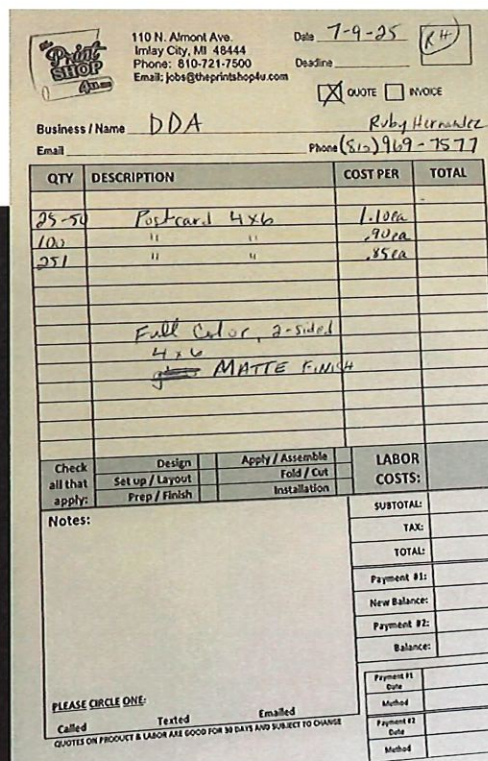 the Print SHOP 4u.com
110 N. Almont Ave.
Imlay City, MI 48444
Phone: 810-721-7500
Email: jobs@theprintshop4u.com
Date 7-9-25
RH
Deadline
X QUOTE INVOICE
Business / Name DDA Ruby Hernandez
Email Phone (810) 969-7577
QTY DESCRIPTION COST PER TOTAL
25-50 Postcard 4x6 1.10ea
100 " " .90ea
251 " " .85ea
Full Color, 2-sided
4x6
MATTE FINISH
Check all that apply:
Design Apply / Assemble
Set up / Layout Fold / Cut
Prep / Finish Installation
LABOR COSTS:
Notes:
SUBTOTAL:
TAX:
TOTAL:
Payment #1:
New Balance:
Payment #2:
Balance:
Payment #1 Date
Method
Payment #2 Date
Method
PLEASE CIRCLE ONE:
Called Texted Emailed
QUOTES ON PRODUCT & LABOR ARE GOOD FOR 30 DAYS AND SUBJECT TO CHANGE